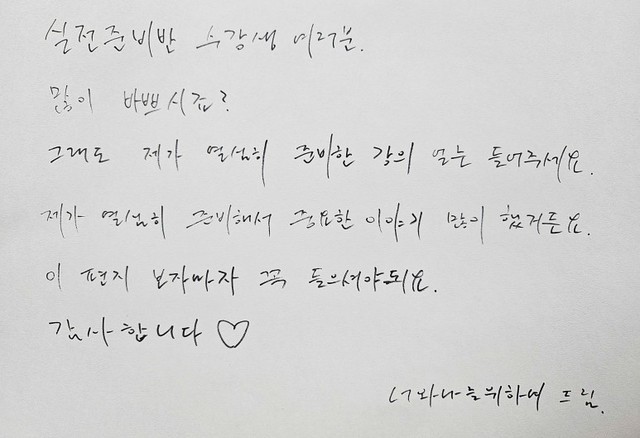 실전준비반 수강생 여러분.
많이 바쁘시죠?
그래도 제가 열심히 준비한 강의 얼른 들어주세요.
제가 열심히 준비해서 중요한 이야기 많이 했거든요.
이 편지 보자마자 꼭 들으셔야돼요.
감사합니다 ♡
너와나를위하여 드림.